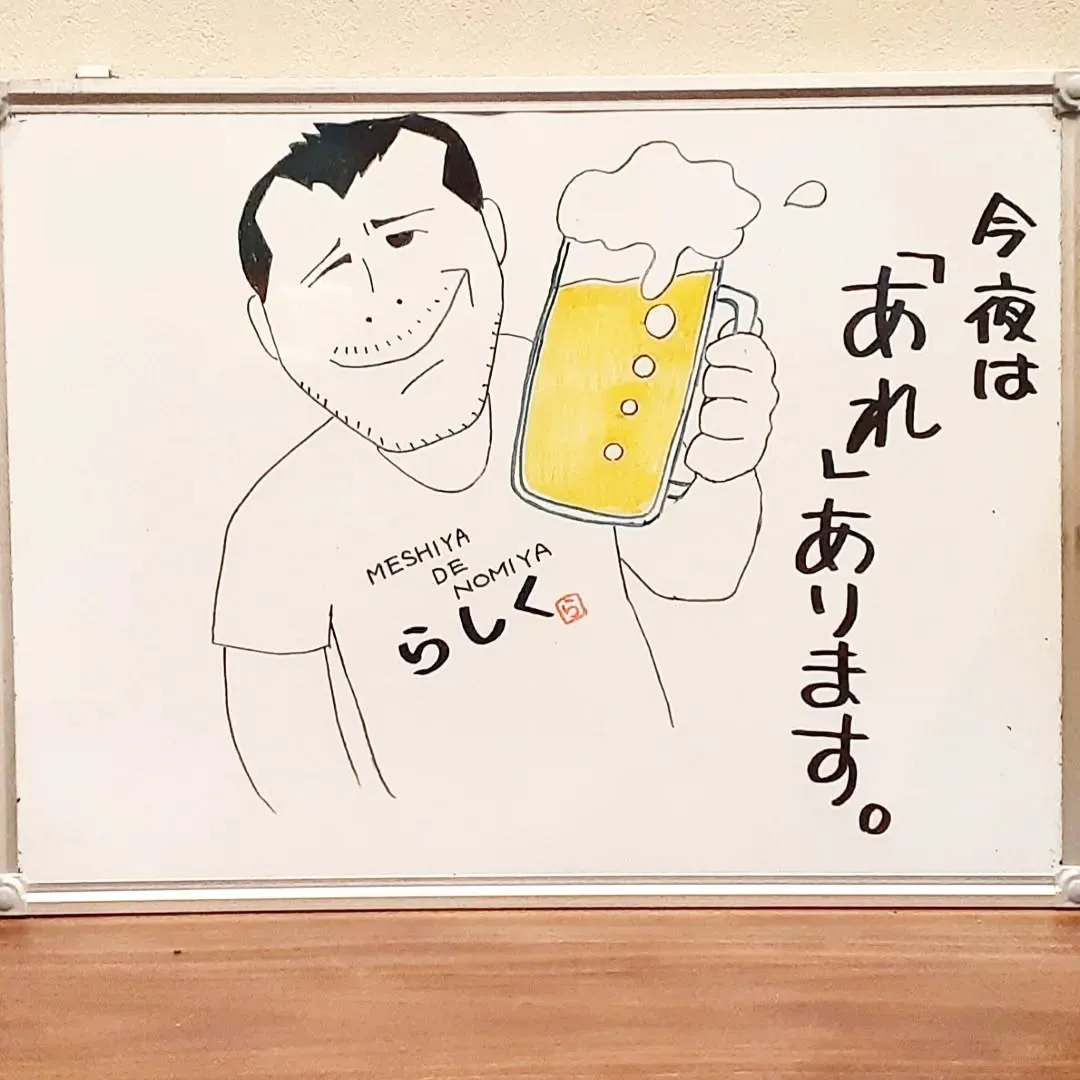 今夜は
「あれ」あります。
MESHIYA
DE
NOMIYA
らしく
ら